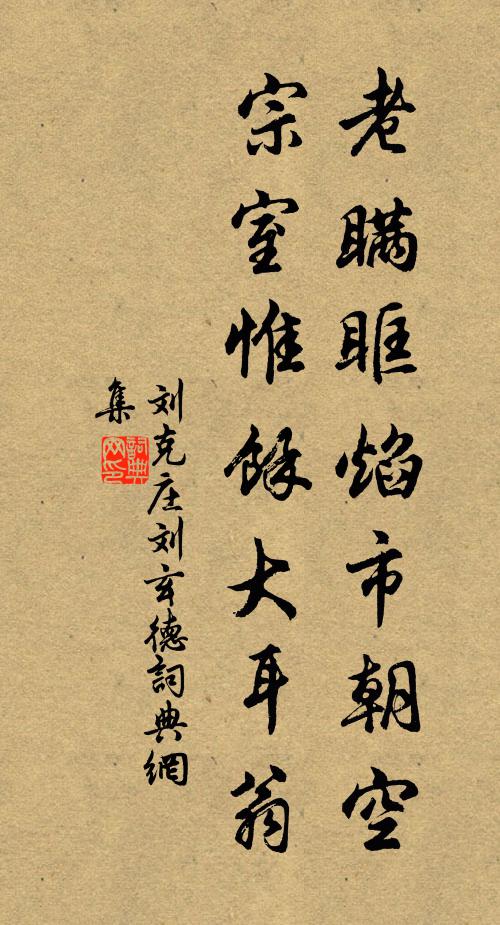 老瞞睚焰市朝空
宗室惟餘大耳翁
刘克庄刘玄德詞典網
集
詞典网印